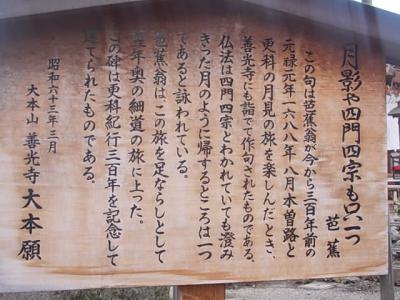 月影や四門四宗も只一つ
芭蕉
この句は芭蕉翁が今から三百年前の
元禄元年一六八八年八月木曽路と
更科の月見の旅を楽しんだとき、
善光寺にも詣でて作句されたものである。
仏法は四門四宗とわかれていても澄み
きった月のように帰するところは一つ
であると詠われている。
芭蕉翁はこの旅を足ならしとして
翌年奥の細道の旅に上った。
この碑は更科紀行三百年を記念して
建てられたものである。
昭和六十三年三月
大本山善光寺大本願